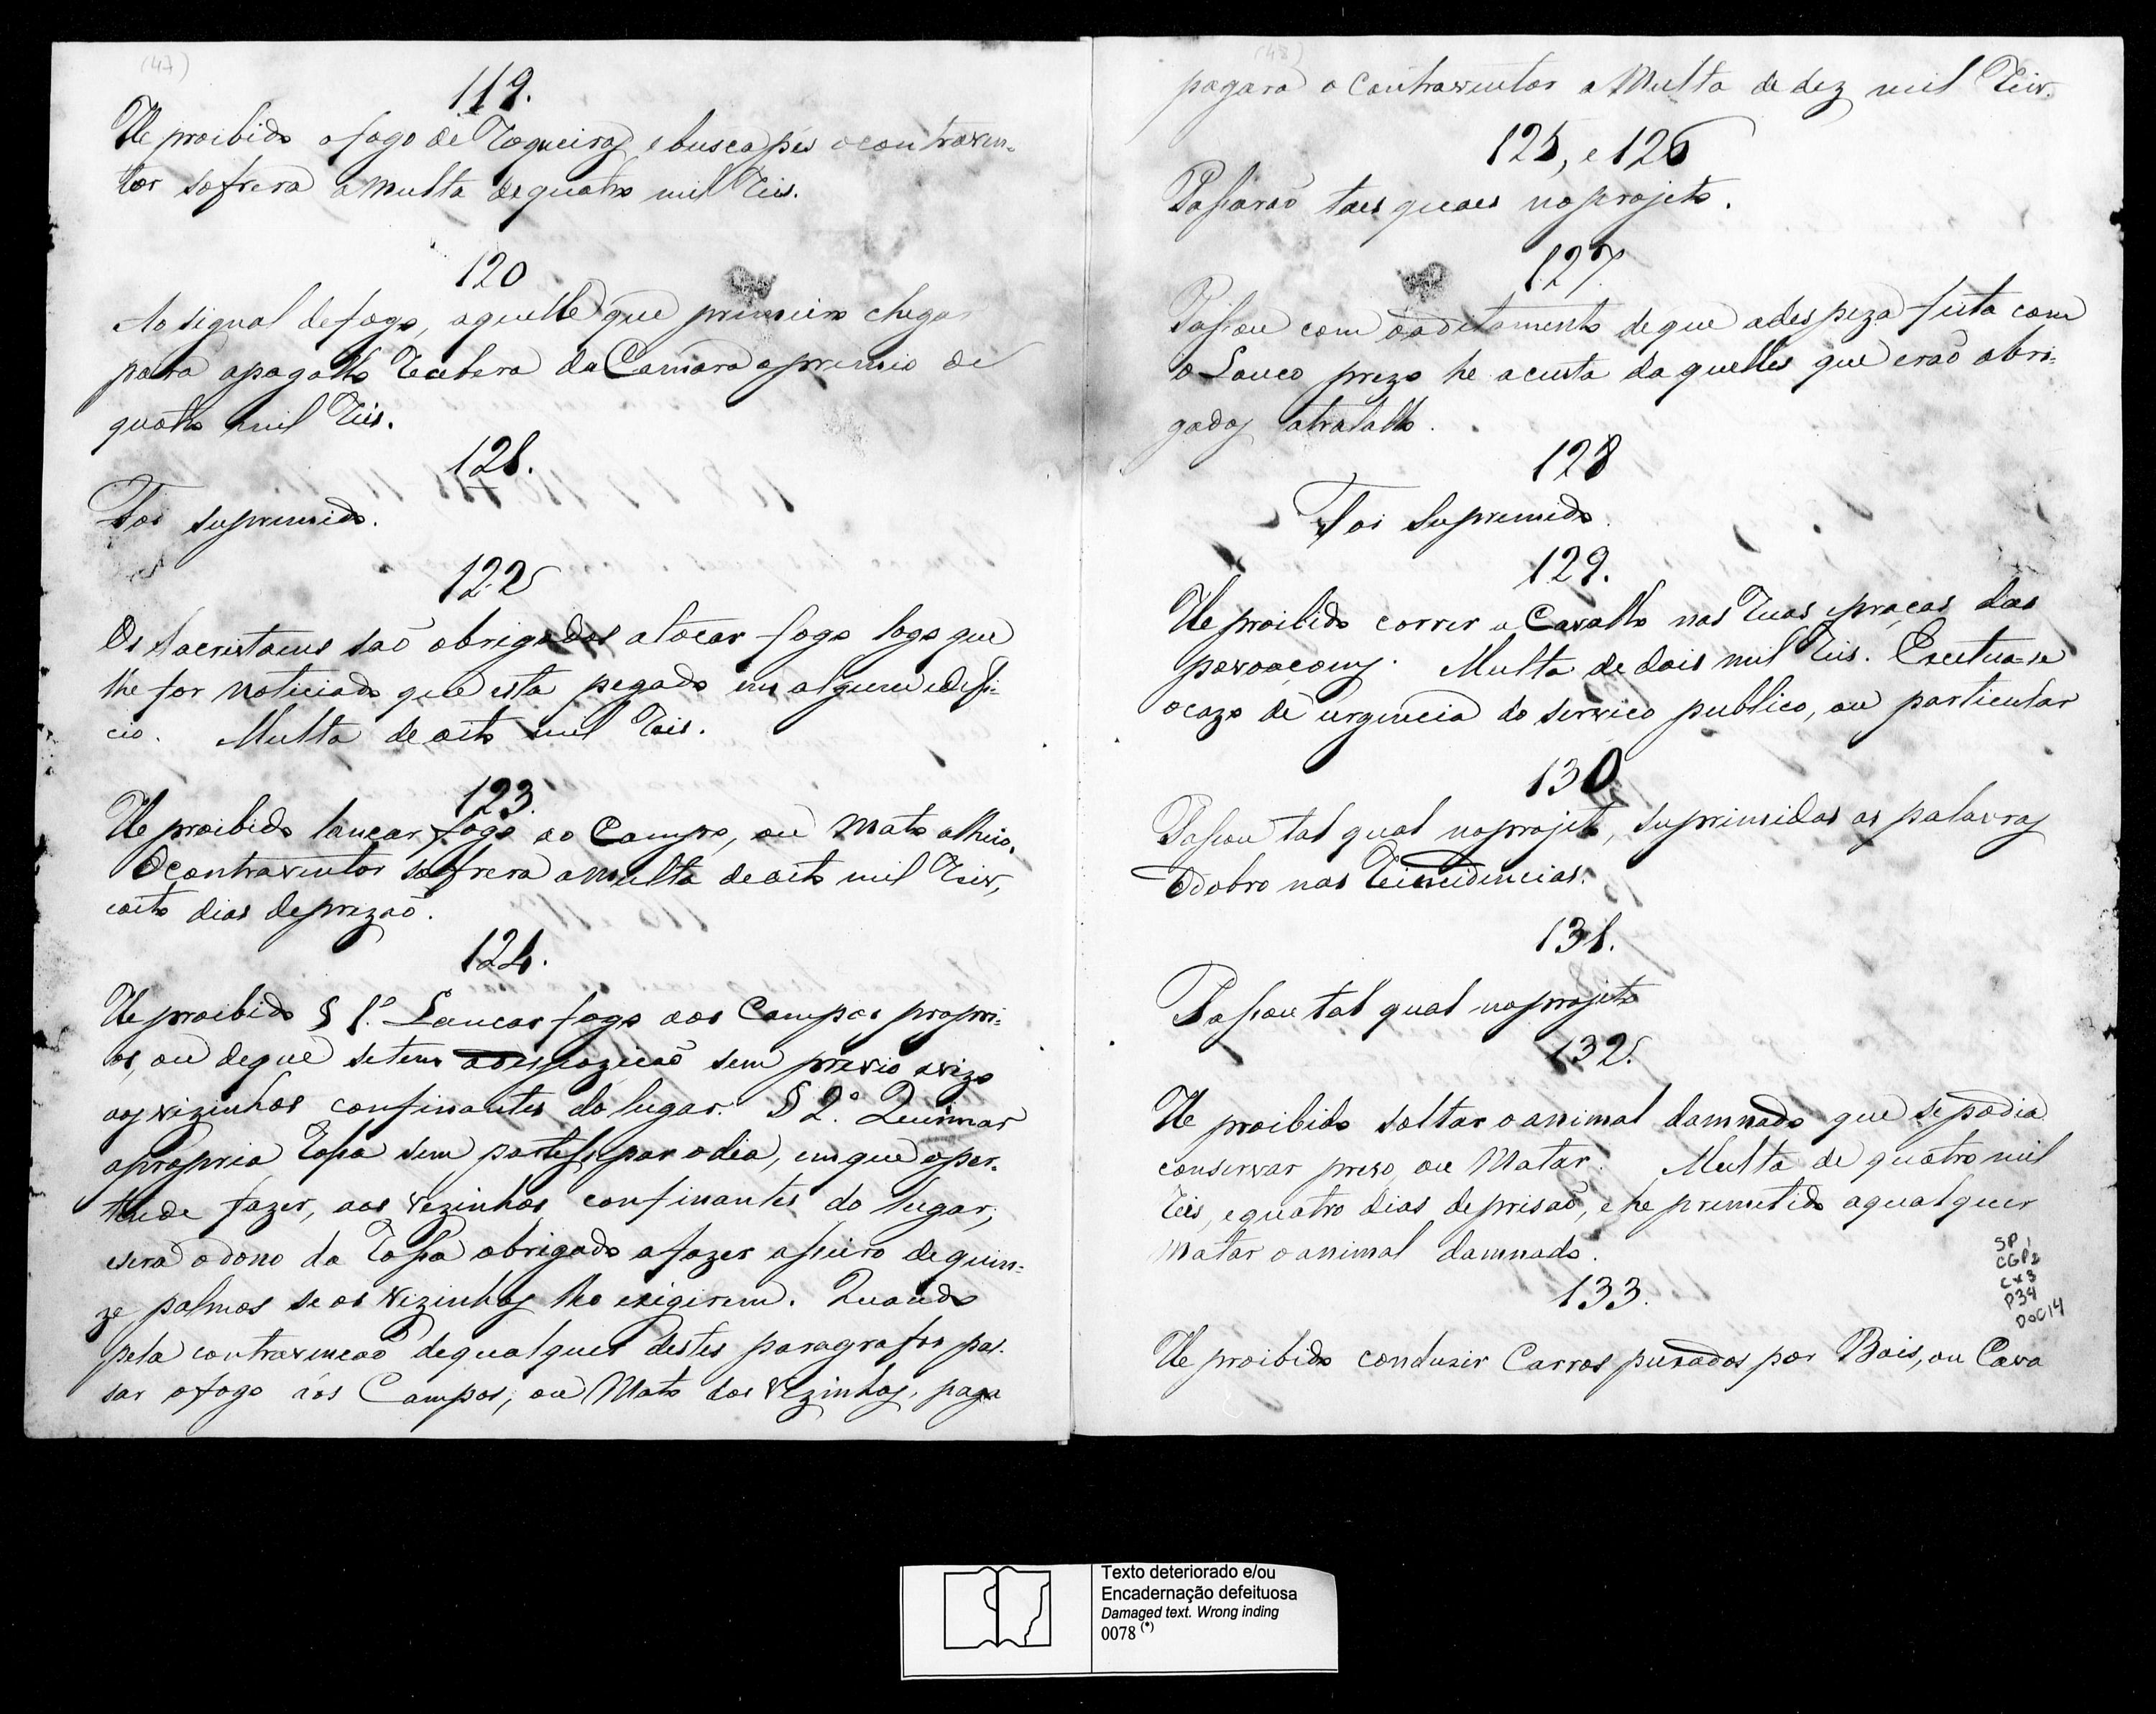 (47)
119.
He proibido o fogo de Roqueiras, e busca pés o contraven-
tor sofrera a multa de quatro mil Reis.
120
Ao signal de fogo, aquelle que primeiro chegar
para apagallo Recebera da Camara o premio de
quatro mil Reis.
121.
Foi suprimido.
122
Os Sacristaens saõ obrigados a tocar fogo logo que
lhe for noticiado que esta pegado em algum edifi-
cio. Multa de oito mil Reis.
123.
He proibido lançar fogo ao Campo, ou Mato alheio.
O contraventor sofrera a multa de oito mil Reis,
e oito dias de prezaõ.
124.
He proibido § 1.º Lancar fogo aos Campos propri-
os, ou de que se tem a despozicaõ sem previo avizo
aos vizinhos confinantes do lugar. § 2.º Queimar
a propria Rossa sem partesipar o dia, em que o per-
tende fazer, aos vezinhos confinantes do lugar,
e sera o dono da Rossa obrigado a fazer asseiro de quin-
ze palmos se os vizinhos lho exigirem. Quando
pela contravencaõ de qualquer destes paragrafos pas-
sar o fogo aos Campos, ou Mato dos vezinhos, paga
(48)
pagara o Contraventor a Multa de dez mil Reis.
125, e 126
Passaraõ taes quaes no projeto.
127.
Passou com o aditamento de que a despeza feita com
o Louco prezo he a custa daquelles que eraõ obri-
gados a tratallo.
128
Foi Supremido.
129.
He proibido correr a Cavallo nas Ruas, e praças das
povoaçoens. Multa de dois mil Reis. Exetua-se
o cazo de urgencia do servico publico, ou particular
130.
Passou tal qual no projeto, suprimidas as palavras
O dobro nas Reincidencias.
131.
Passou tal qual no projeto
132.
He proibido soltar o animal damnado que se podia
conservar prezo, ou Matar. Multa de quatro mil
Reis, e quatro dias de prisaõ, e he premetido a qualquer
matar o animal damnado.
133.
He proibido conduzir Carros puxados por Bois, ou Cava
SP 1
CGP2
CX3
P34
DOC14
Texto deteriorado e/ou
Encadernação defeituosa
Damaged text. Wrong inding
0078 (*)